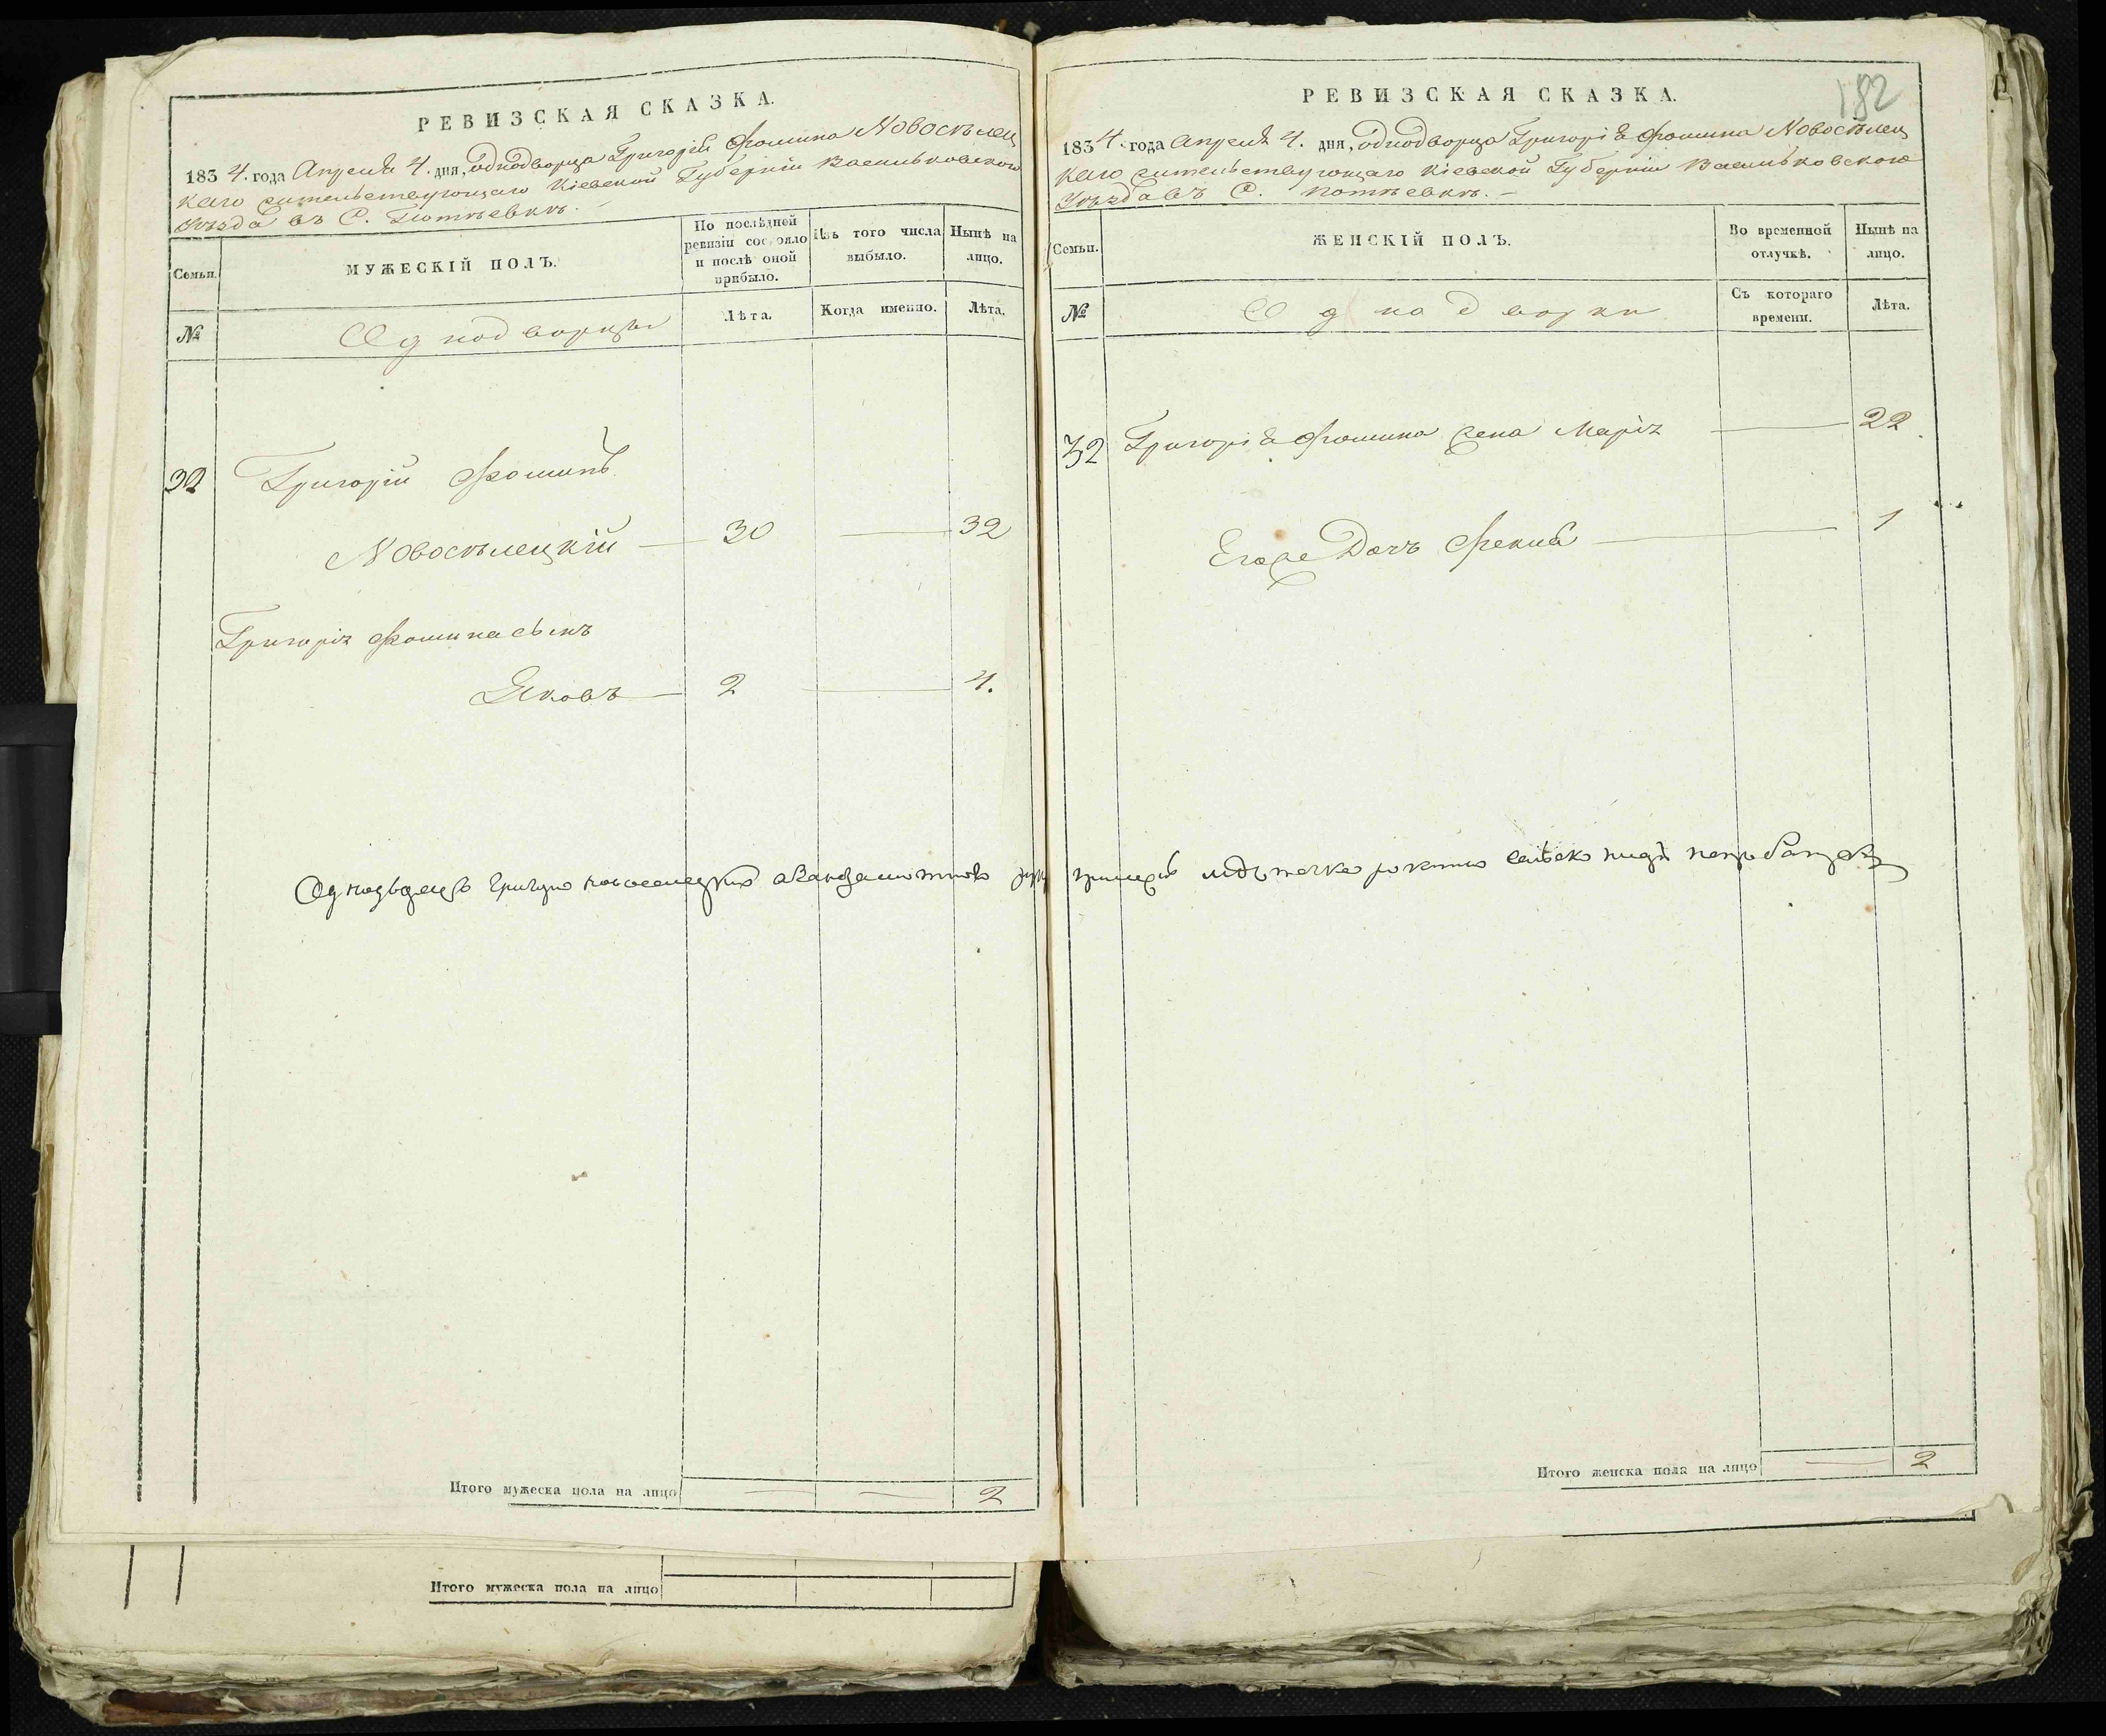 РЕВИЗСКАЯ СКАЗКА.
1834. года Апреля 4. дня, однодворца Григорія Фомина Новосѣлец
каго жительствующаго Кіевской Губерніи Васильковскаго
Уѣзда въ С.
Семьи.
МУЖЕСКІЙ ПОЛЪ.
По послѣдней ревизіи состояло и послѣ оной прибыло.
Изъ того числа выбыло.
Нынѣ на лицо.
№
Однодворцы
Лѣта.
Когда именно.
Лѣта.
32
Григорій Фоминъ
Новосѣлецкій — 30 — 32
Григорія Фомина сынъ
Яковъ — 2 — 4.
Итого мужеска пола на лицо — — 2
Итого мужеска пола на лицо
182
РЕВИЗСКАЯ СКАЗКА.
1834. года Апреля 4. дня, однодворца Григорія Фомина Новосѣлец
каго жительствующаго Кіевской Губерніи Васильковскаго
Уѣзда въ С.
Семьи.
ЖЕНСКІЙ ПОЛЪ.
Во временной отлучкѣ.
Нынѣ на лицо.
№
Однодворки
Съ котораго времени.
Лѣта.
32 Григорія Фомина жена Марія — 22
Егоже Дочь — 1
Однодворецъ
Итого женска пола на лицо — 2